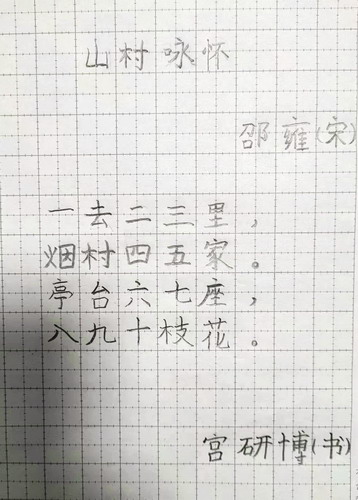 山村咏怀
邵雍(宋)
一去二三里,
烟村四五家。
亭台六七座,
八九十枝花。
宫研博(书)